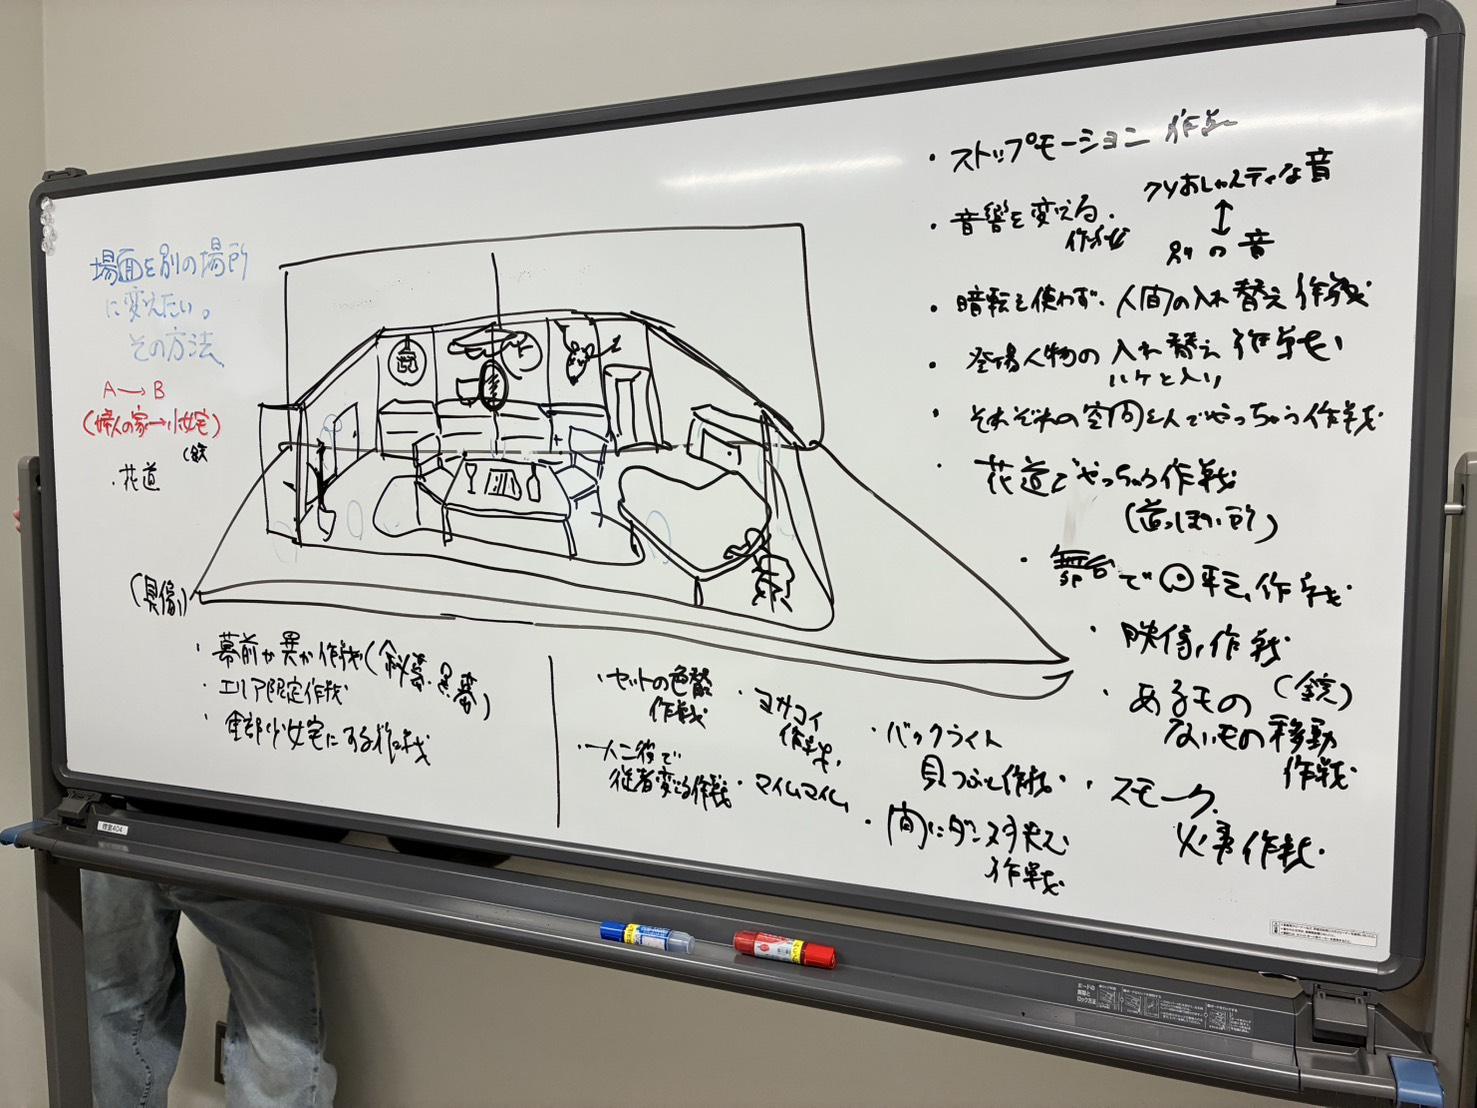 場面を別の場所
に変えたい。
その方法
A→B
(婦人の家→少女宅)
・花道
・幕前か異か作戦(紗幕・黒幕)
・エリア限定作戦
・全部少女宅にする作戦
・ストップモーション 作戦
・音響を変える。
作戦
クソおしゃんティな音
↕
別の音
・暗転を使わず、人間の入れ替え作戦
・登場人物の入れ替え作戦
ハケと入り
・それぞれの空間を人でやっちゃう作戦
・花道でやっちゃう作戦
(道っぽい所)
・舞台で回転作戦
・映像作戦
・あるもの
ないもの移動
作戦
・セットの色替
作戦
・ヨサコイ
作戦
・一人二役で
従者変える作戦
・マイムマイム
・バックライト
見つぶし作戦
・間にダンス挟む
作戦
・スモーク
火事作戦
教室404